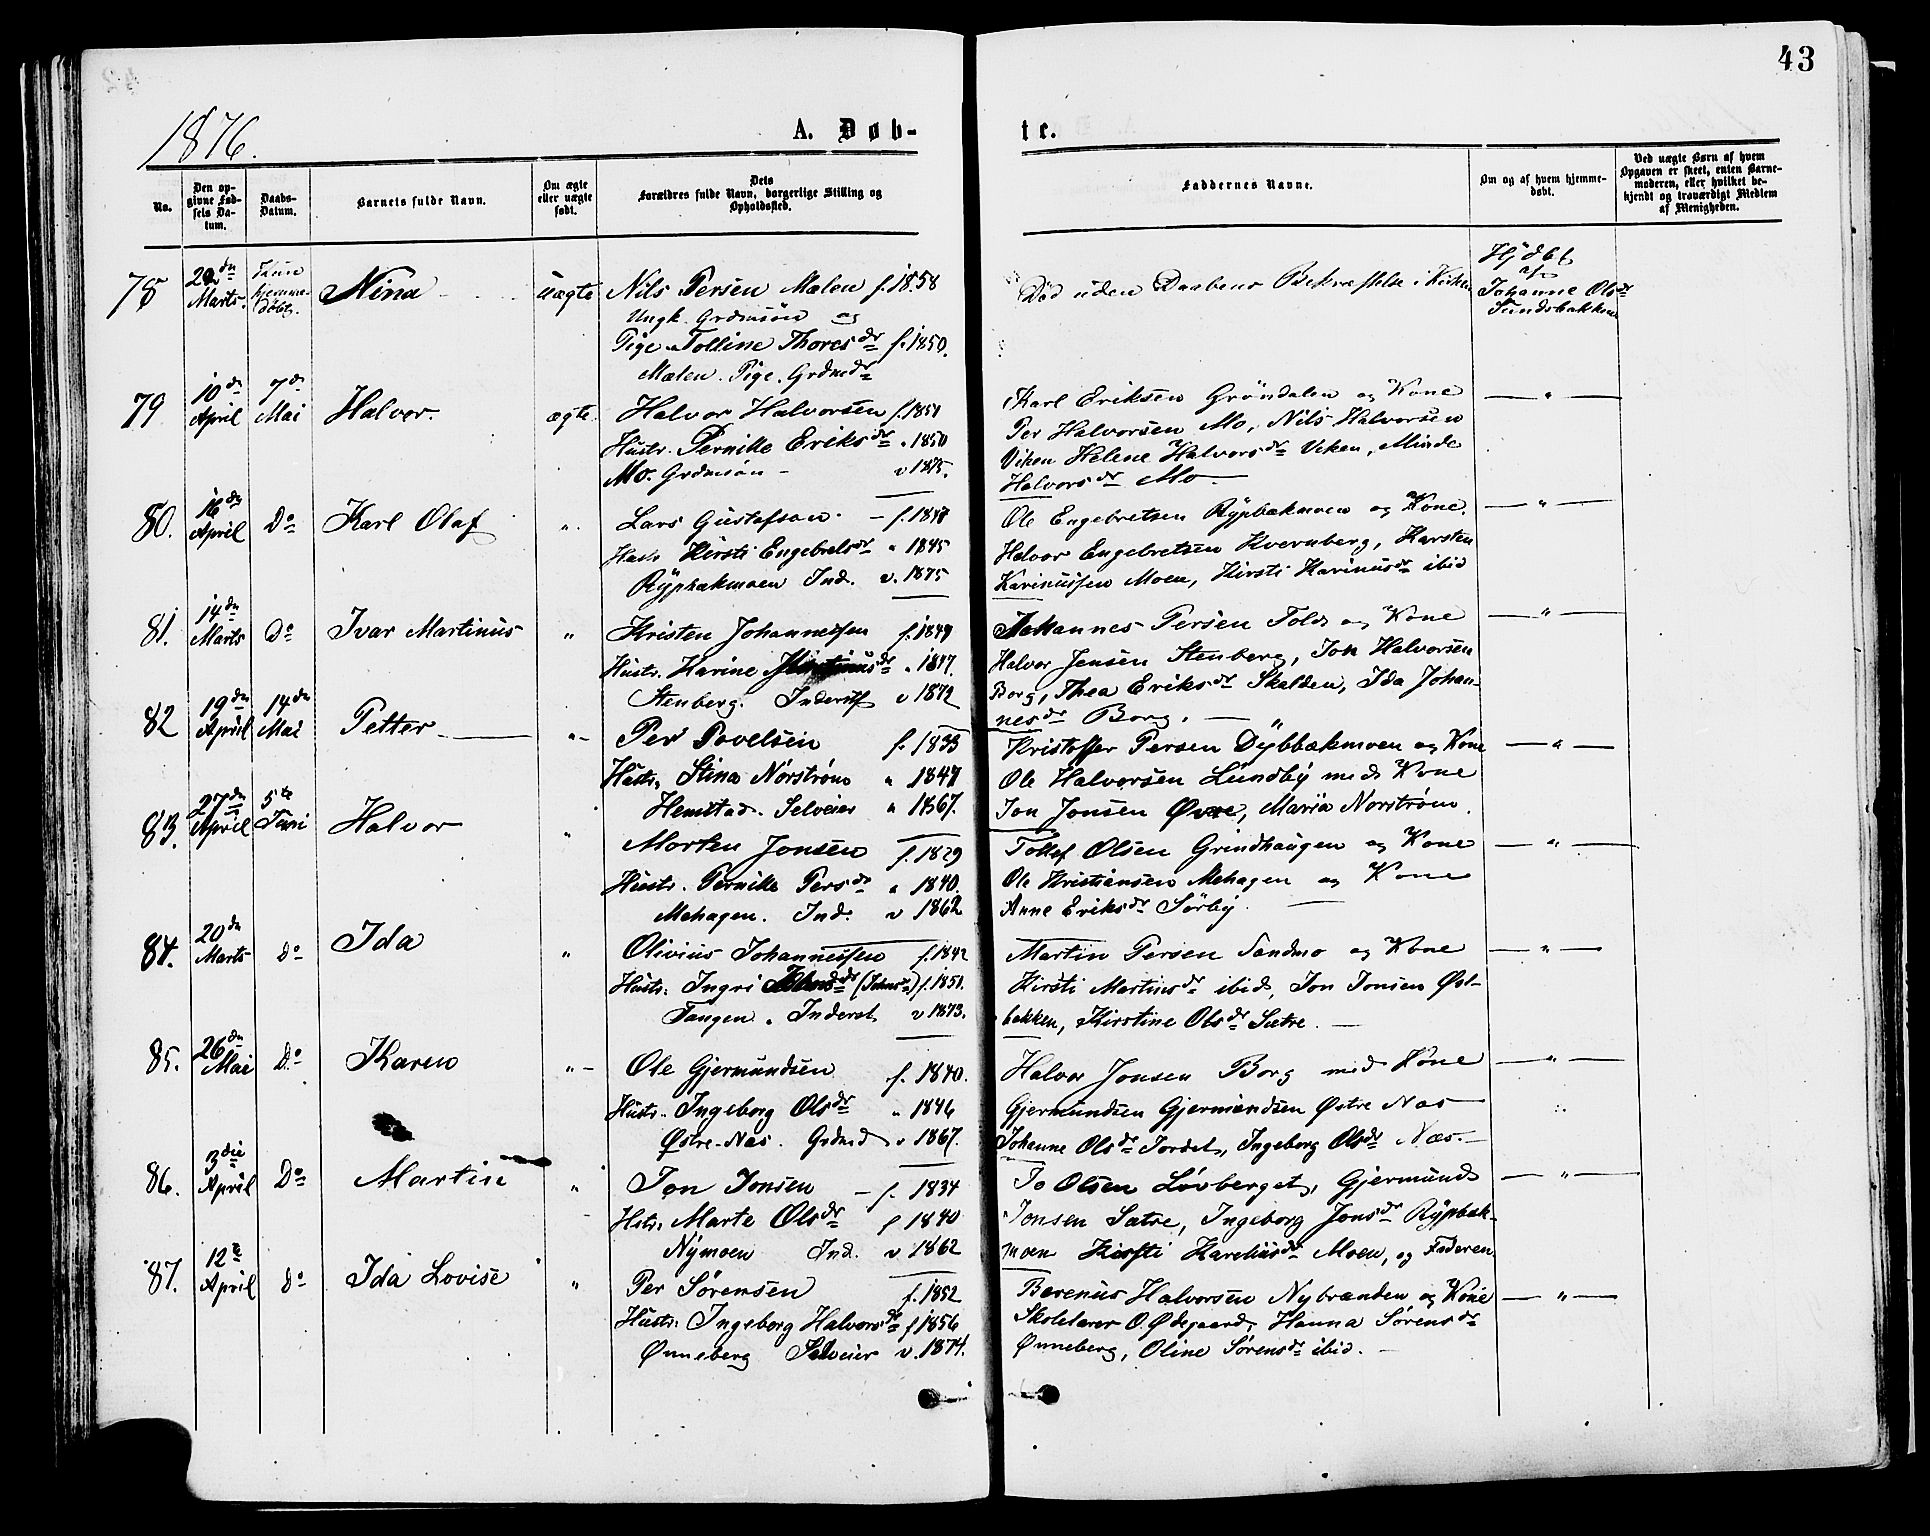 43
1876.
A. Døb-
te.
No.
Den op-
givne Fød-
sels Da-
tum.
Daabs-
Datum.
Barnets fulde Navn.
Om ægte
eller uægte
født.
Dets
Forældres fulde Navn, borgerlige Stilling og
Opholdssted.
Faddernes Navne.
Om og af hvem hjemme-
døbt.
Ved uægte Børn af hvem
Opgaven er skeet, enten Barne-
moderen, eller hvilket be-
kjendt og troværdigt Medlem
af Menigheden.
78 Marts. Kun hjemme-døbt. Nina uægte Nils Persen Mælen f. 1858
Ungk. Grdmsön og
Pige Tolline Thoresdr f. 1850.
Mælen. Pige. Grdmdr
Död uden Daabens Bekræftelse i Kirken
Hjdbt
af
Johanne Olsdr
Sundsbakken
79 10de April 7de Mai Halvor. ægte. Halvor Halvorsen f. 1851
Hustr. Pernille Eriksdr " 1850
Mo. Grdmsön - v 1875.
Karl Eriksen Gröndalen og Kone
Per Halvorsen Mo, Nils Halvorsen
Viken Helene Halvorsdr Viken, Minde
Halvorsdr Mo —
— " —
80. 16de April Do Karl Olaf " Lars Gustafson - f. 1848
Kirsti Engebretsdr " 1845
Rÿpbækmoen Ind. v. 1875
Ole Engebretsen Rÿpbækmoen og Kone.
Halvor Engebretsen Kvernberg, Karsten
Karinussen Moen, Kirsti Karinusdr ibid
— " —
81. 14de Marts Do Ivar Martinus " Kristen Johannessen f. 1849
Hustr. Karine " 1847.
Stenberg. Inderst v 1872
Johannes Persen Tolds og Kone
Halvor Jensen Stenberg, Jon Halvorsen
Borg, Thea Eriksdr Skalden, Ida Johan-
nesdr Borg. —
— " —
82 19de April 14de Mai Petter " Per Povelsen f. 1833
Hustr. Stina Norström " 1847
Hemstad. Selveier " 1867.
Kristoffer Persen Dÿbbækmoen og Kone
Ole Halvorsen Lundby med Kone
Jon Jonsen Øvre, Maria Norström.
— " —
83. 27de April 5te Juni Halvor " Morten Jonsen f. 1829
Hustr. Pernille Persdr " 1840.
Mehagen. Ind. v 1862
Tollef Olsen Grindhaugen og Kone
Ole Kristiansen Mehagen og Kone
Anne Eriksdr Sörby. —
— " —
84. 20de Marts Do Ida " Olivius Johannessen f. 1842
Hustr. Ingri f. 1851.
Tangen. Inderst v 1873.
Martin Persen Sandmo og Kone
Kirsti Martinsdr ibid, Jon Jonsen Øst-
bakken, Kirstine Olsdr Sætre. —
— " —
85. 26de Mai Do Karen " Ole Gjermundsen f. 1840.
Hustr. Ingeborg Olsdr " 1846
Østre-Næs. Grdmd v 1867.
Halvor Jonsen Borg med Kone
Gjermundsen Gjermundsen Østre Næs
Johanne Olsdr Jordet, Ingeborg Olsdr Næs. —
— " —
86. 3die April Do Martin " Jon Jonsen — f. 1834
Hstr. Marte Olsdr f 1840
Nÿmoen Ind. v 1862
Jo Olsen Lövberget, Gjermund
Jonsen Sætre, Ingeborg Jonsdr Rÿpbæk-
moen Kirsti Moen, og Faderen
— " —
87. 12te April Do Ida Lovise " Per Sörensen f. 1852
Hustr. Ingeborg Halvorsdr f 1856
Ønneberg Selveier v. 1874.
Berenus Halvorsen Nybrænden og Kone
Skolelærer O. Ødegaard, Hanna Sörensdr
Ønneberg, Oline Sörensdr ibid. —
— " —